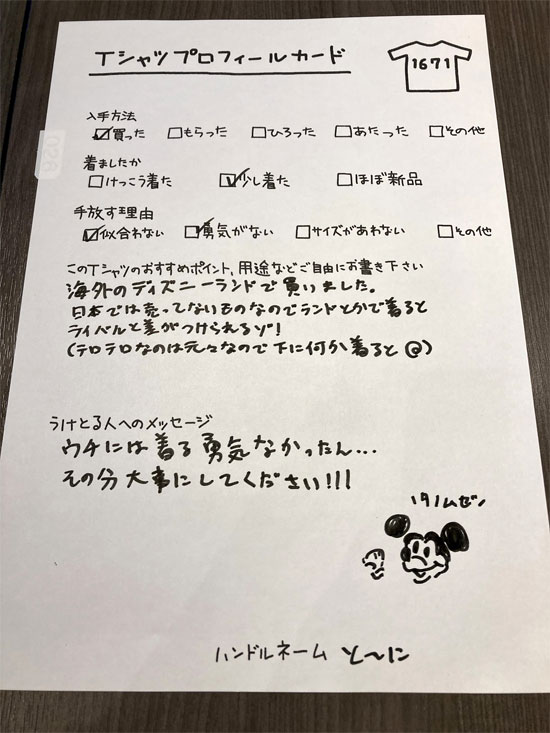 Tシャツプロフィールカード
1671
入手方法
☑買った □もらった □ひろった □あたった □その他
着ましたか
□けっこう着た ☑少し着た □ほぼ新品
手放す理由
☑似合わない ☑勇気がない □サイズがあわない □その他
このTシャツのおすすめポイント、用途などご自由にお書き下さい
海外のディズニーランドで買いました。
日本では売ってないものなのでランドとかで着ると
ライバルと差がつけられるゾ!
(テロテロなのは元々なので下に何か着ると◎)
うけとる人へのメッセージ
ウチには着る勇気なかったん…
その分大事にしてください!!!
タノムゼ
ハンドルネーム と〜に